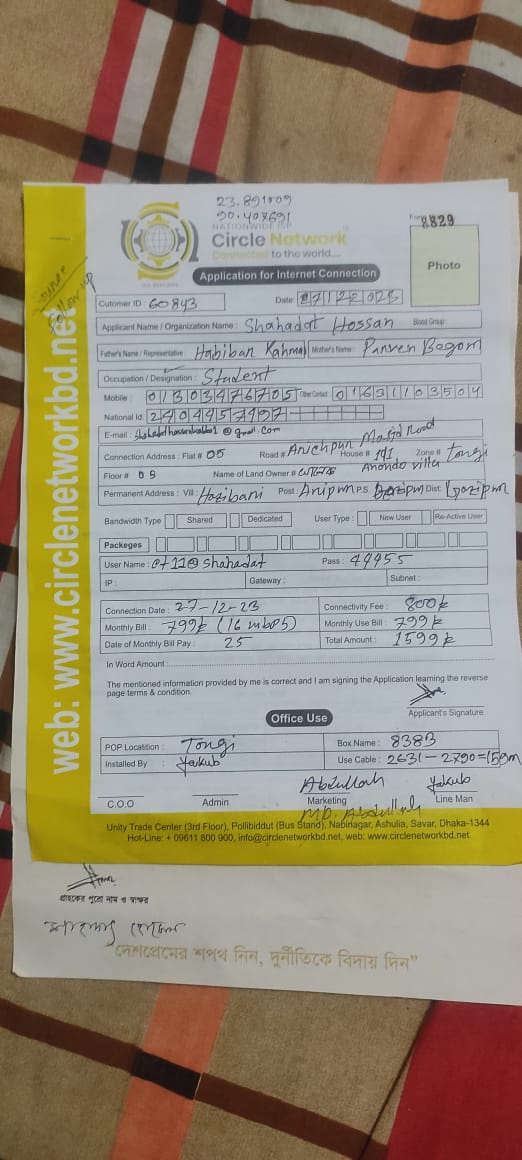 23.891809
90.408691
NATIONWIDE ISP
Circle Network
Connected to the world....
Form 8829
Application for Internet Connection
Photo
Cutomer ID 60843
Date: 27122023
Applicant Name / Organization Name : Shahadat Hossan Blood Group:
Father's Name / Representative : Habibar Rahman Mother's Name : Parven Begom
Occupation / Designation : Student
Mobile : 01303476705 Other Contact 01631103504
National Id: 2404457497
E-mail : @gmail.com
Connection Address : Flat # 05 Road # Arichpur Masjid Road House # 141 Zone # Tongi
Floor # 05 Name of Land Owner # Anondo villa
Permanent Address : Vill : Post : P.S Dist : Gazipur
Bandwidth Type Shared Dedicated User Type : New User Re-Active User
Packeges
User Name : @shahadat Pass : 44455
IP : Gateway : Subnet :
Connection Date : 27-12-23 Connectivity Fee : 800
Monthly Bill : 799 (16 mbps) Monthly Use Bill : 799
Date of Monthly Bill Pay : 25 Total Amount : 1599
In Word Amount :
The mentioned information provided by me is correct and I am signing the Application learning the reverse
page terms & condition.
Applicant's Signature
Office Use
POP Locatition : Tongi Box Name : 838B
Installed By : Yakub Use Cable : 2631 - 2790=159m
Abdullah Yakub
C.O.O Admin Marketing Line Man
MD. Abdullah
Unity Trade Center (3rd Floor), Pollibiddut (Bus Stand), Nabinagar, Ashulia, Savar, Dhaka-1344
Hot-Line: + 09611 800 900, info@circlenetworkbd.net, web: www.circlenetworkbd.net
web: www.circlenetworkbd.net
Follow up
গ্রাহকের পুরো নাম ও স্বাক্ষর
দেশপ্রেমের শপথ নিন, দুর্নীতিকে বিদায় দিন"